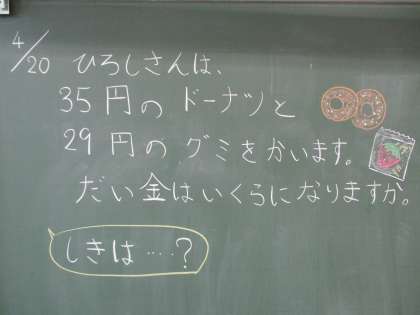 4/20 ひろしさんは、
35円の ドーナツと
29円の グミをかいます。
だい金はいくらになりますか。
しきは‥‥?